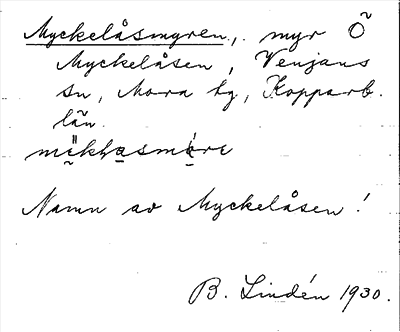 Myckelåsmyren, myr Õ
Myckelåsen, Venjans
sn, Mora hg, Kopparb.
län.
Namn av Myckelåsen!
B. Lindén 1930.